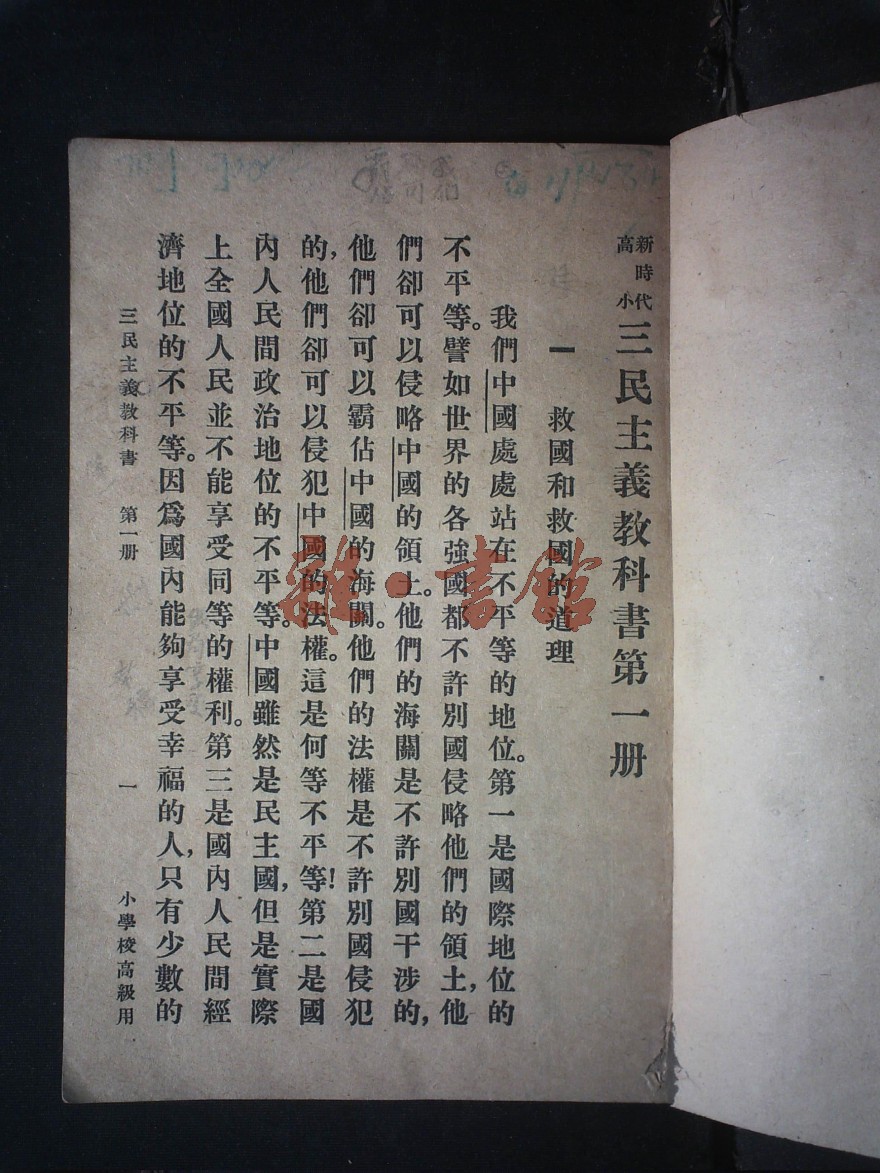 新時代
高小
三民主義教科書第一册
一 救國和救國的道理
我們中國處處站在不平等的地位。第一是國際地位的
不平等。譬如世界的各強國都不許別國侵略他們的領土,他
們卻可以侵略中國的領土。他們的海關是不許別國干涉的,
他們卻可以霸佔中國的海關。他們的法權是不許別國侵犯
的,他們卻可以侵犯中國的法權。這是何等不平等!第二是國
內人民間政治地位的不平等。中國雖然是民主國,但是實際
上全國人民並不能享受同等的權利。第三是國內人民間經
濟地位的不平等。因爲國內能夠享受幸福的人,只有少數的
三民主義教科書 第一册 一 小學校高級用
雜·書館